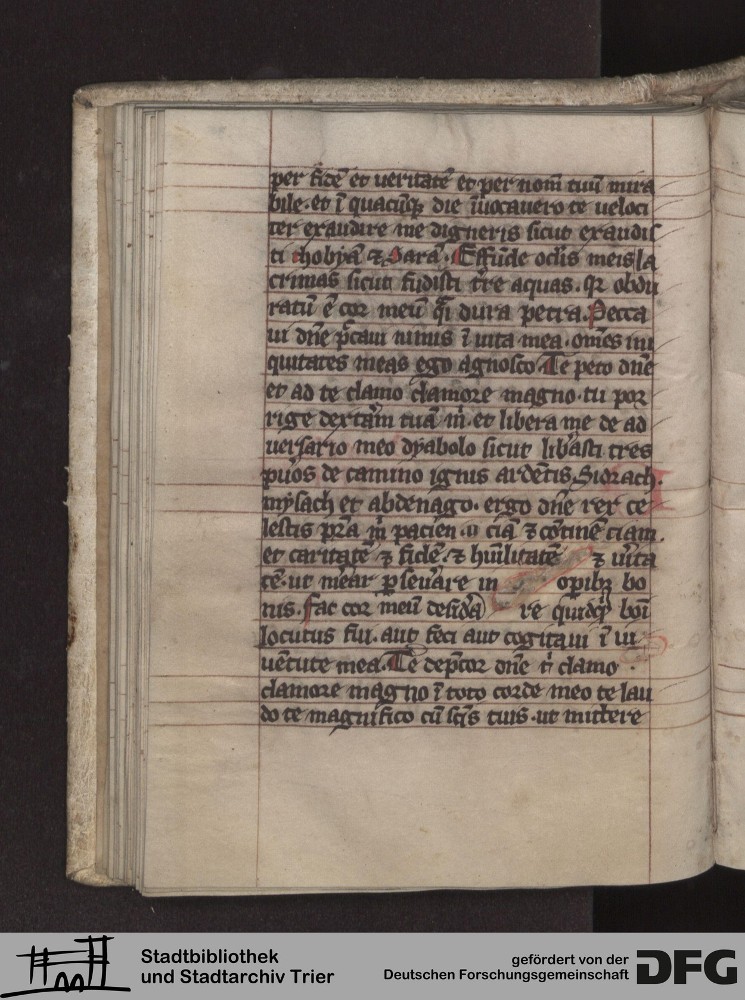 per fidē et veritatē et per nom̄ tuū mira
bile · et ī quacūqꝫ die īuocauero te ueloci
ter exaudire me digneris sicut exaudis
ti thobyā ⁊ Sarā. Effūde oclīs meis la
crimas sicut fudisti t̄re aquas. qꝛ obdu
ratū ē cor meū q̄i dura petra. Pecca
ui dn̄e p̄caui nimis ī uita mea. om̄es ini
quitates meas ego agnosco. Te peto dn̄e
et ad te clamo clamore magno. tu por
rige dextām tuā m̄. et libera me de ad
uersario meo dyabolo sicut lib̄asti tres
pu̓os de camino ignis ardētis. Sidrach.
mysach et abdenago. ergo dn̄e rex ce
lestis
et caritatē ⁊ fidē ⁊ hūilitatē ⁊ u̓ita
tē. ut me̓ar ꝑseu̓are in opibꝫ bo
nis. fac cor meū desid̓a re quidqͥd
locutus fui. aut feci aut cogitaui ī iu
uētute mea. Te dep̄cor dn̄e clamo
clamore magno ī toto corde meo te lau
do te magnifico cū sc̄īs tuis. ut mittere
Stadtbibliothek
und Stadtarchiv Trier
gefördert von der
Deutschen Forschungsgemeinschaft
DFG